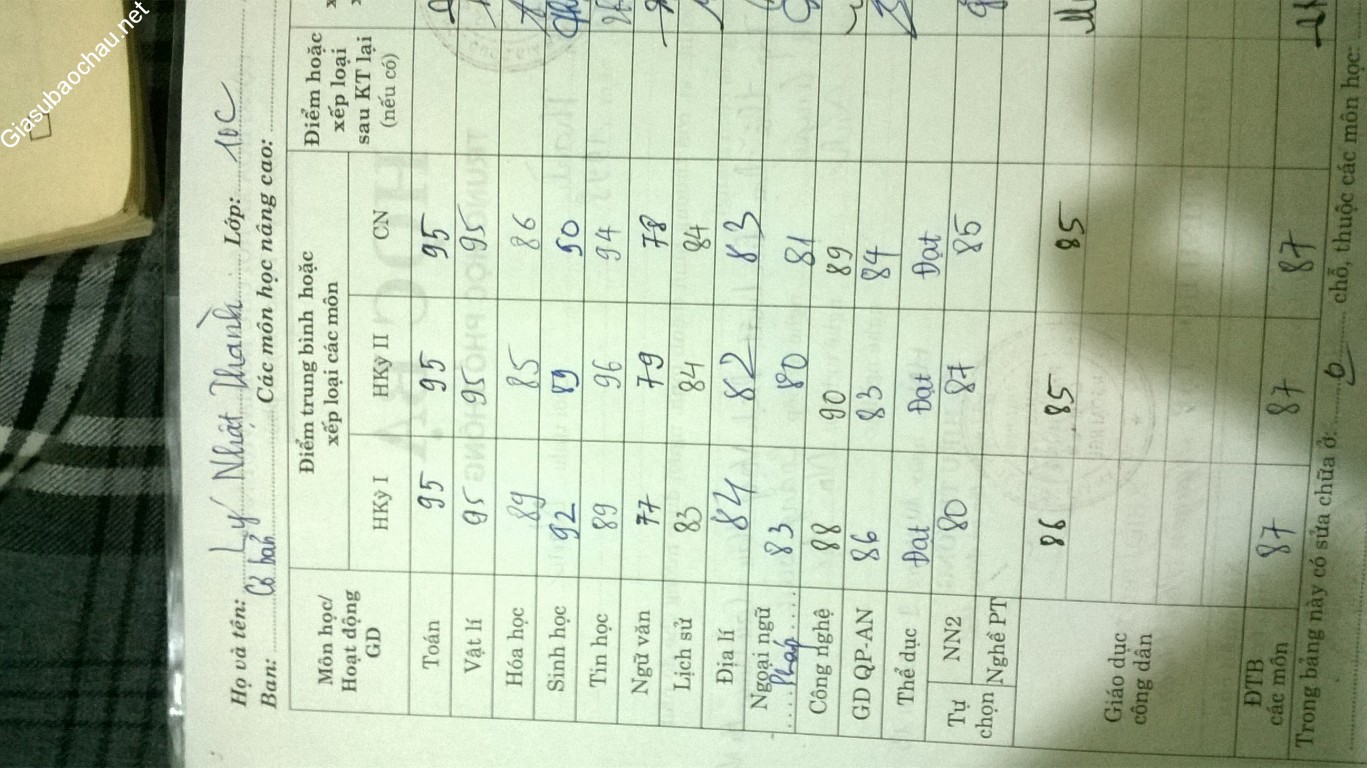 Giasubaochau.net
Họ và tên: Lý Nhật Thanh Lớp: 10C
Ban: Cơ bản Các môn học nâng cao:
Môn học/ Hoạt động GD
Điểm trung bình hoặc xếp loại các môn
Điểm hoặc xếp loại sau KT lại (nếu có)
HKỳ I HKỳ II CN
Toán 95 95 95
Vật lí 95 95 95
Hóa học 89 85 86
Sinh học 92 89 90
Tin học 89 96 94
Ngữ văn 77 79 78
Lịch sử 83 84 84
Địa lí 84 82 83
Ngoại ngữ Pháp 83 80 81
Công nghệ 88 90 89
GD QP-AN 86 83 84
Thể dục Đạt Đạt Đạt
Tự chọn NN2 80 87 85
Nghề PT
Giáo dục công dân 86 85 85
ĐTB các môn 87 87 87
Trong bảng này có sửa chữa ở: 0 chỗ, thuộc các môn học: